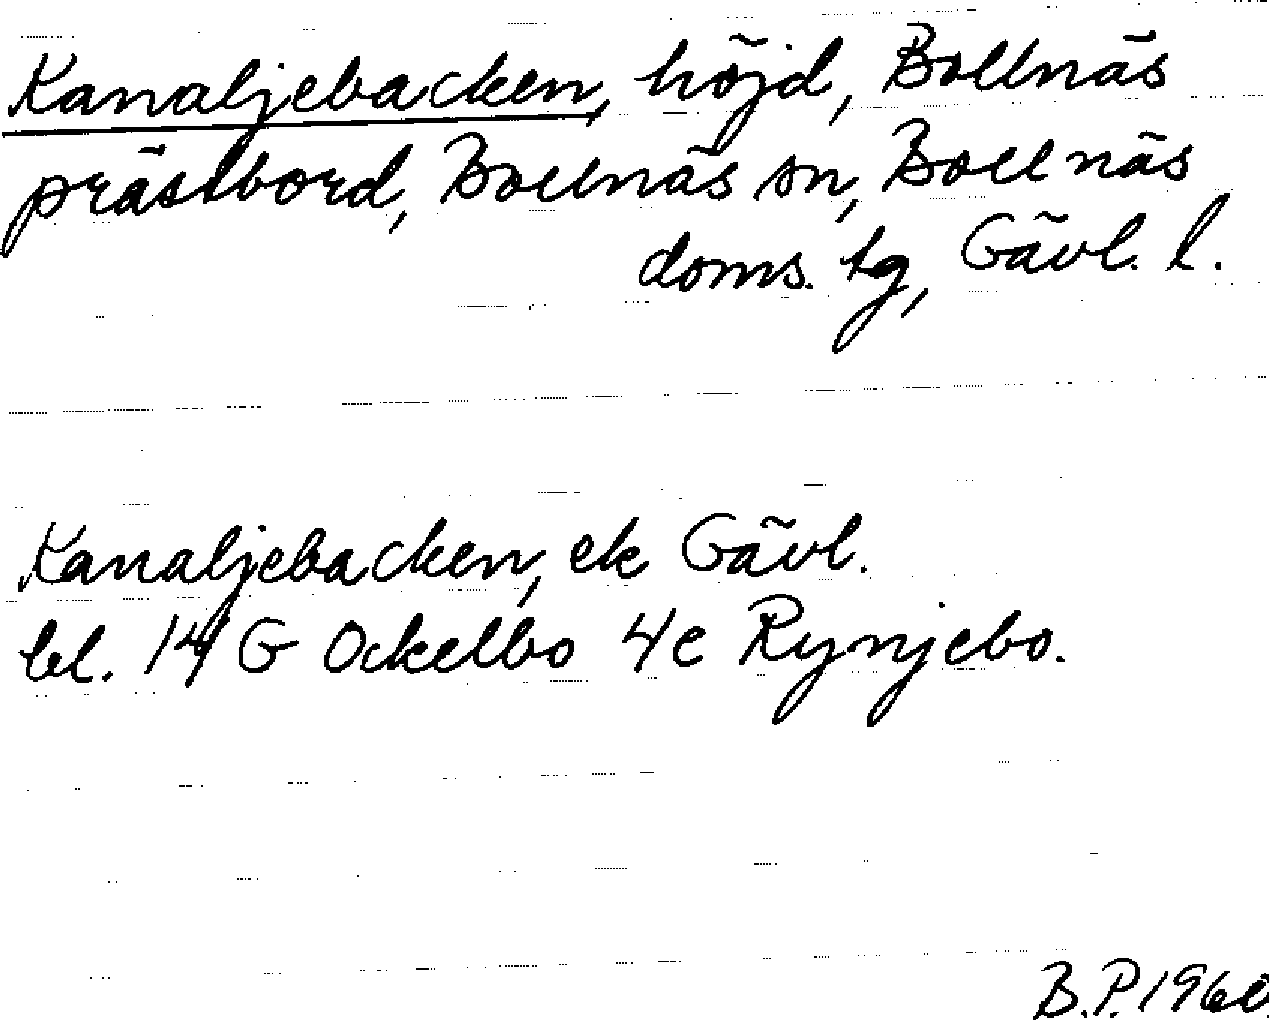 Kanaljebacken, höjd, Bollnäs
prästbord, Bollnäs sn, Bollnäs
doms. tg, Gävl. l.
Kanaljebacken, ek Gävl.
bl. 14 G Ockelbo 4e Rynjebo.
B.P. 1960.